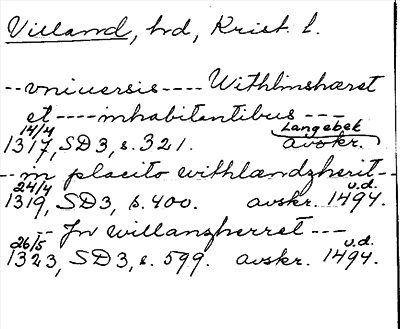 Villand, hd, Krist. l.
--vniuersis---- Withlinshæret
et ---- inhabitantibus ---
14/4 Langebek
1317, SD 3, s. 321. avskr.
--in placito withlændzherit--
24/4 u.d.
1319, SD3, s. 400. avskr. 1494.
-- Jn willanzherret ---
26/5 u.d.
1323, SD 3, s. 599. avskr. 1494.